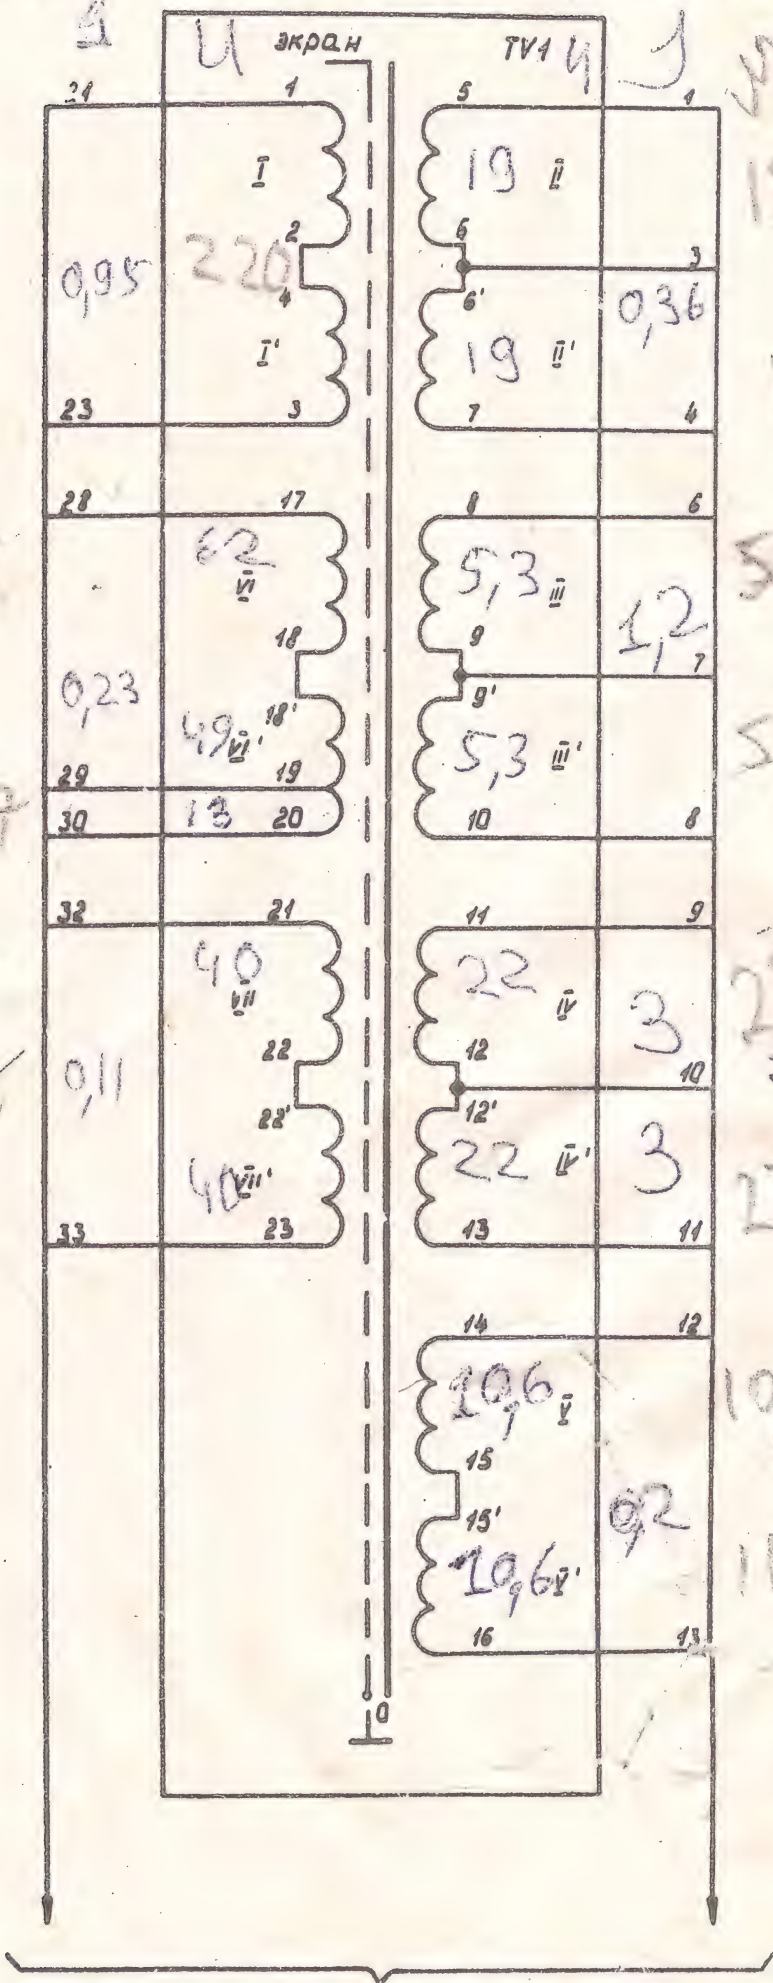 U экран TV1 U J
21 1 5 1
I 19 II
2 6 3
0,95 220
4 6' 0,36
I' 19 II'
23 3 7 4
28 17 8 6
62 5,3 III
VI
18 9 1,2 7
0,23 18' 9'
49 VI' 5,3 III'
29 19
30 13 20 10 8
32 21 11 9
40 22 IV 3
VII
22 12 10
0,11 22' 12'
40 VII' 22 IV' 3
33 23 13 11
14 12
10,6 V
15
15' 0,2
10,6 V'
16 13
0